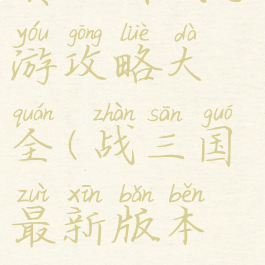 yóu gōng lüè dà
游攻略大
quán zhàn sān guó
全(战三国
zuì xīn bǎn běn
最新版本